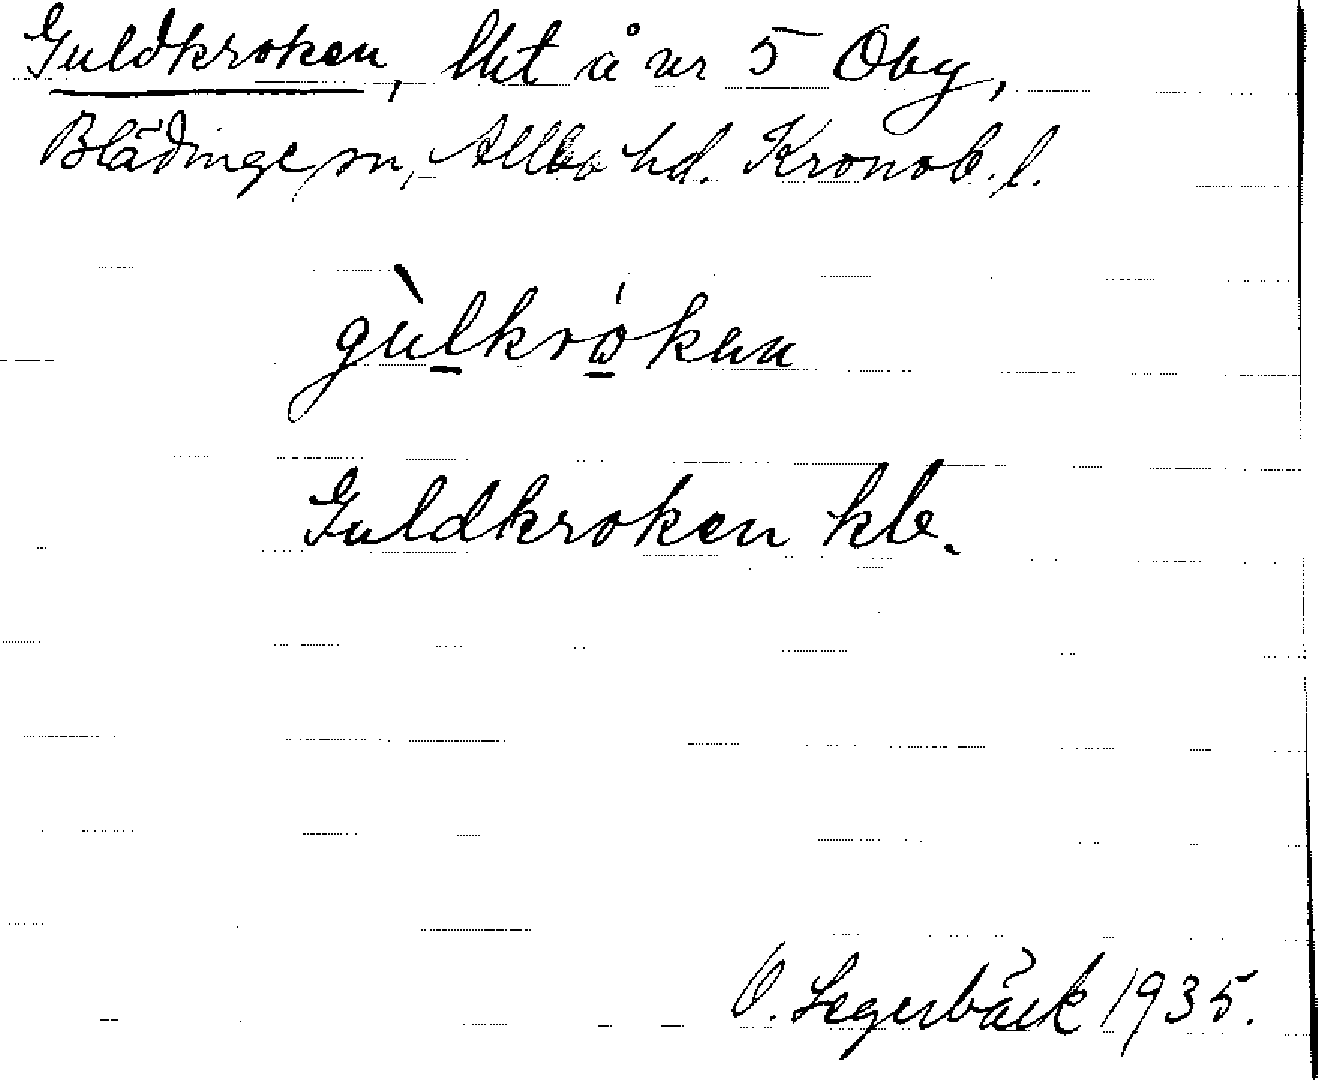 Guldkroken, lht å nr 5 Oby,
Blädinge sn, Allbo hd. Kronob. l.
gùlkróken
Guldkroken klb.
O. Segerbäck 1935.